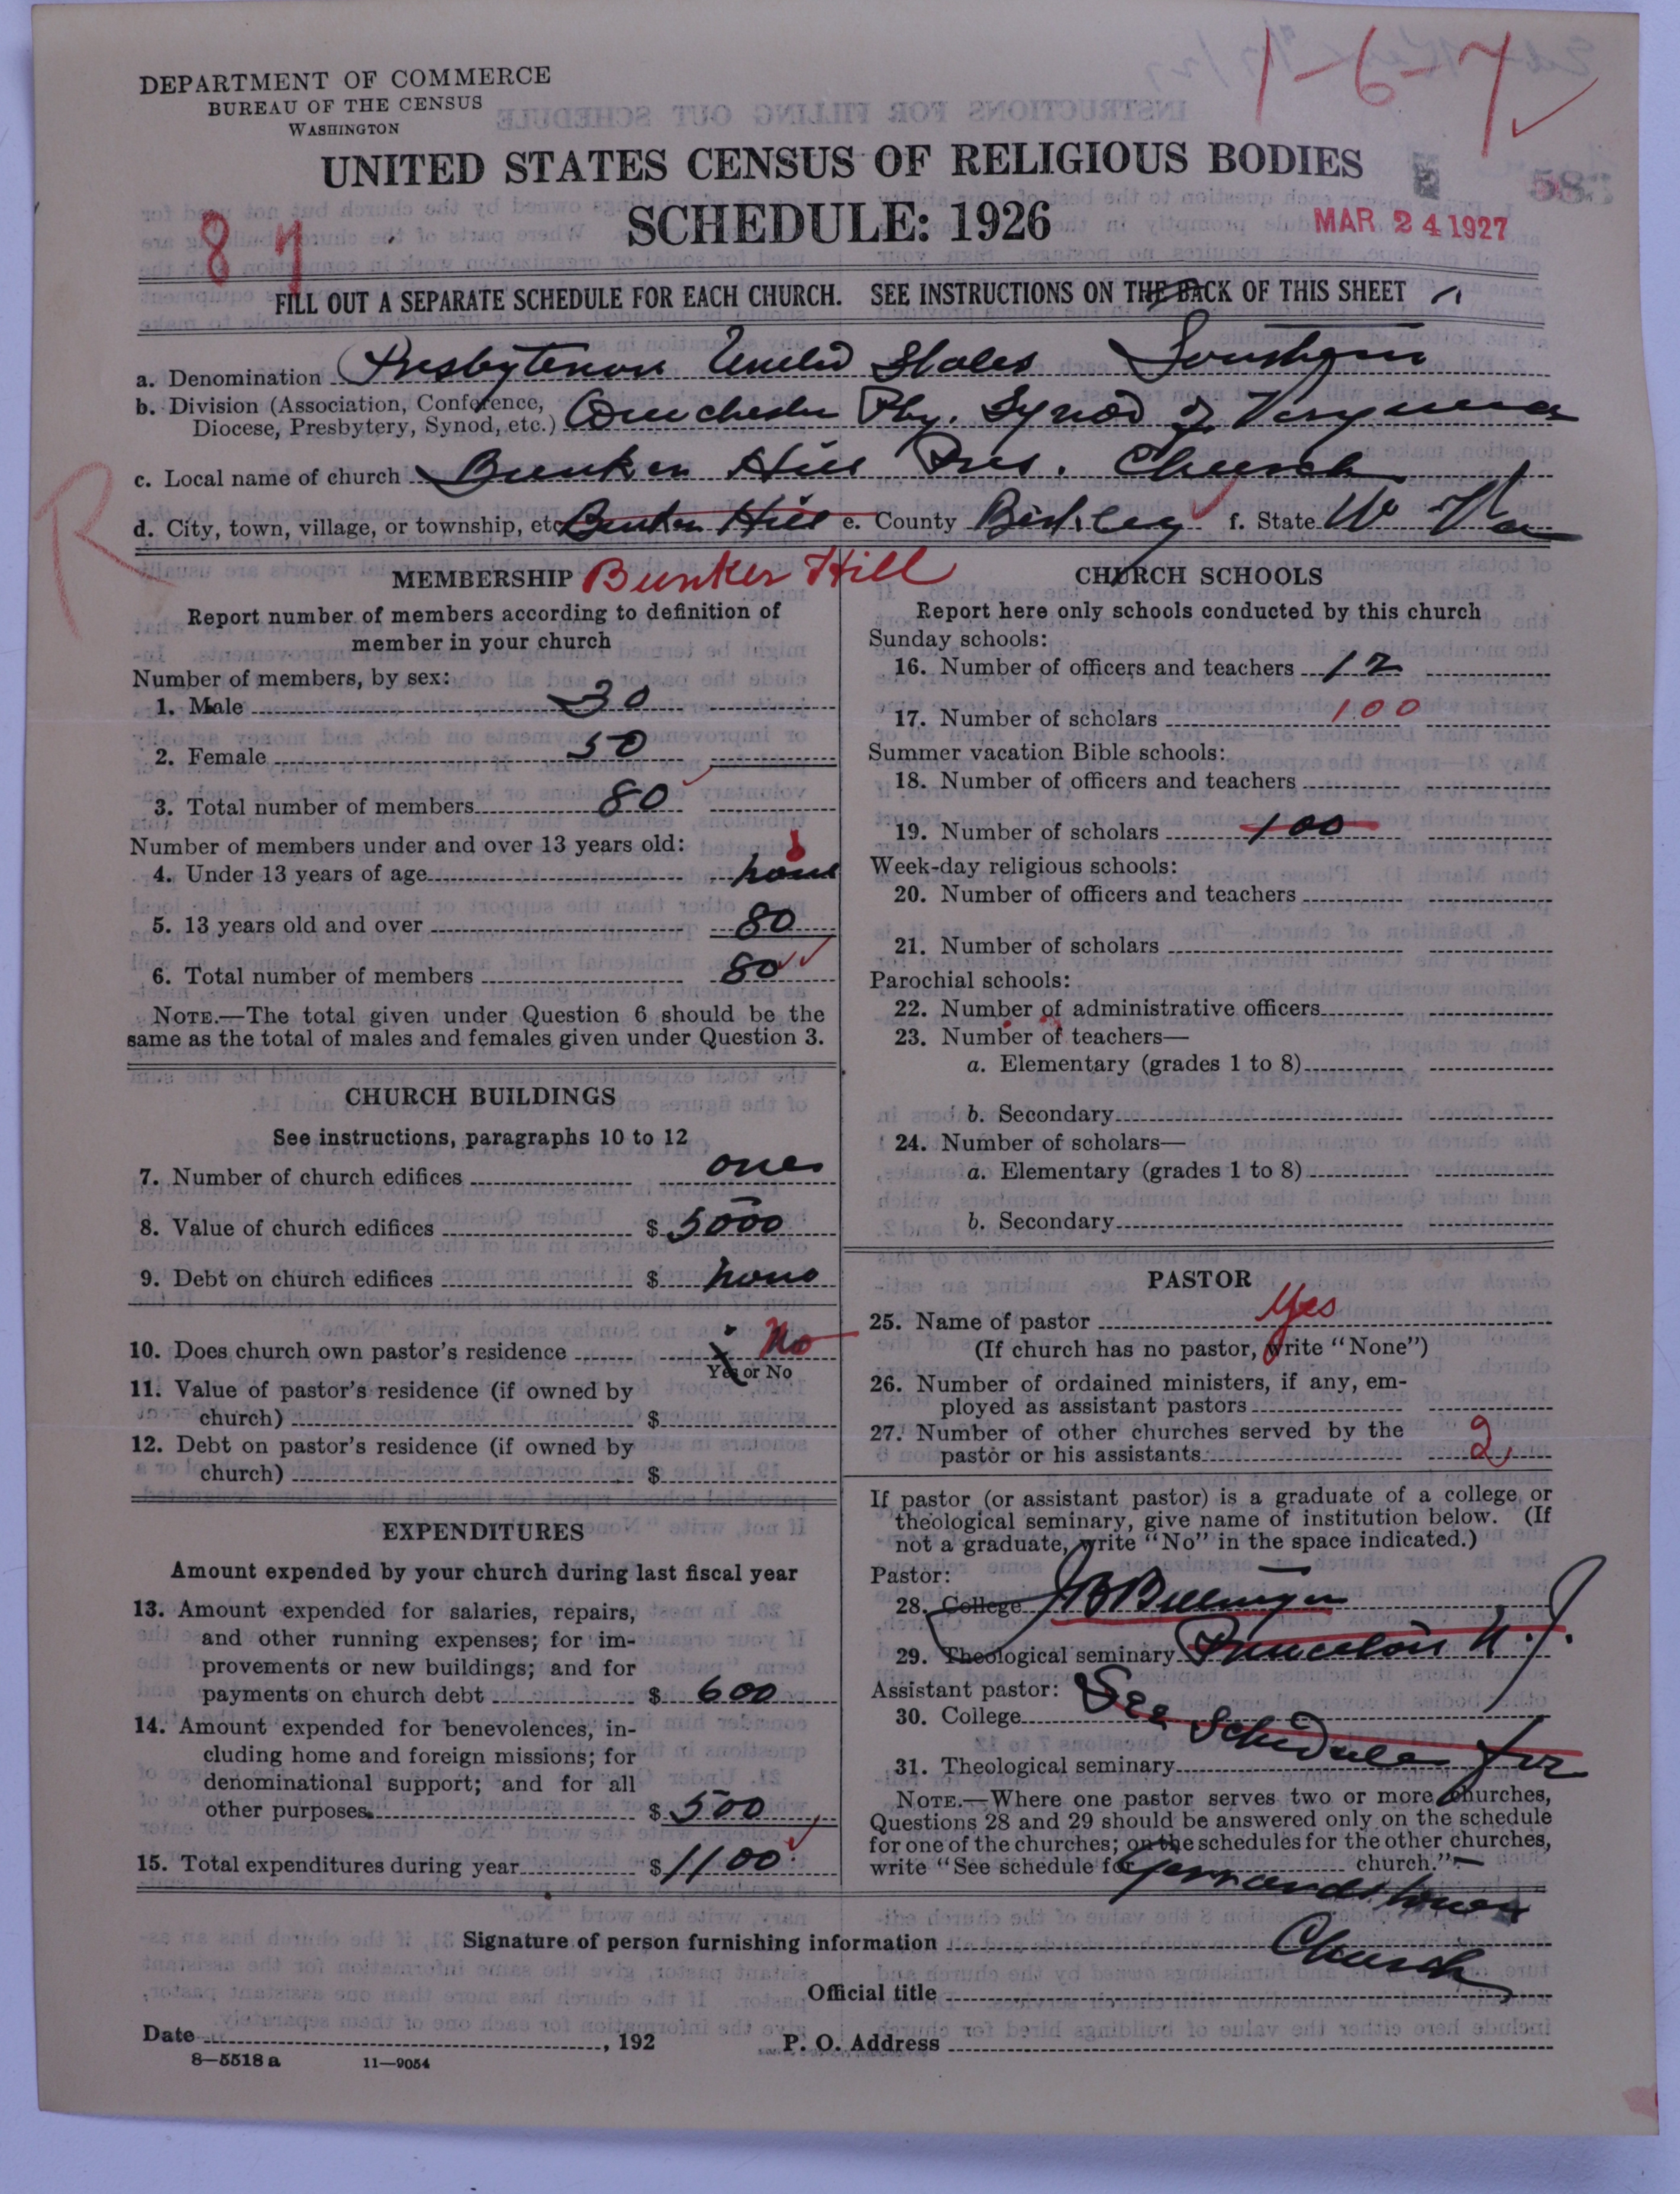 1-6-7
DEPARTMENT OF COMMERCE
BUREAU OF THE CENSUS
WASHINGTON
UNITED STATES CENSUS OF RELIGIOUS BODIES
SCHEDULE: 1926
MAR 24 1927
FILL OUT A SEPARATE SCHEDULE FOR EACH CHURCH. SEE INSTRUCTIONS ON THE BACK OF THIS SHEET
a. Denomination Presbyterian United States Southern
b. Division (Association, Conference, Diocese, Presbytery, Synod, etc.) Winchester Pby. Synod of Virginia
c. Local name of church Bunker Hill Pres. Church
d. City, town, village, or township, etc. Bunker Hill e. County Berkeley f. State W Va
MEMBERSHIP Bunker Hill
Report number of members according to definition of
member in your church
Number of members, by sex:
1. Male 30
2. Female 50
3. Total number of members 80
Number of members under and over 13 years old:
4. Under 13 years of age none
5. 13 years old and over 80
6. Total number of members 80
NOTE.—The total given under Question 6 should be the
same as the total of males and females given under Question 3.
CHURCH BUILDINGS
See instructions, paragraphs 10 to 12
7. Number of church edifices one
8. Value of church edifices $ 5000
9. Debt on church edifices $ none
10. Does church own pastor's residence No
Yes or No
11. Value of pastor's residence (if owned by
church) $
12. Debt on pastor's residence (if owned by
church) $
EXPENDITURES
Amount expended by your church during last fiscal year
13. Amount expended for salaries, repairs,
and other running expenses; for im-
provements or new buildings; and for
payments on church debt $ 600
14. Amount expended for benevolences, in-
cluding home and foreign missions; for
denominational support; and for all
other purposes $ 500
15. Total expenditures during year $ 1100
CHURCH SCHOOLS
Report here only schools conducted by this church
Sunday schools:
16. Number of officers and teachers 12
17. Number of scholars 100
Summer vacation Bible schools:
18. Number of officers and teachers
19. Number of scholars 100
Week-day religious schools:
20. Number of officers and teachers
21. Number of scholars
Parochial schools:
22. Number of administrative officers
23. Number of teachers—
a. Elementary (grades 1 to 8)
b. Secondary
24. Number of scholars—
a. Elementary (grades 1 to 8)
b. Secondary
PASTOR
25. Name of pastor Yes
(If church has no pastor, write "None")
26. Number of ordained ministers, if any, em-
ployed as assistant pastors
27. Number of other churches served by the
pastor or his assistants 2
If pastor (or assistant pastor) is a graduate of a college or
theological seminary, give name of institution below. (If
not a graduate, write "No" in the space indicated.)
Pastor:
28. College J B
29. Theological seminary Princeton N.J.
Assistant pastor:
30. College See
31. Theological seminary Schedule for
NOTE.—Where one pastor serves two or more churches,
Questions 28 and 29 should be answered only on the schedule
for one of the churches; on the schedules for the other churches,
write "See schedule for church."
Church
Signature of person furnishing information
Official title
Date , 192
P. O. Address
8—5518 a 11—9054